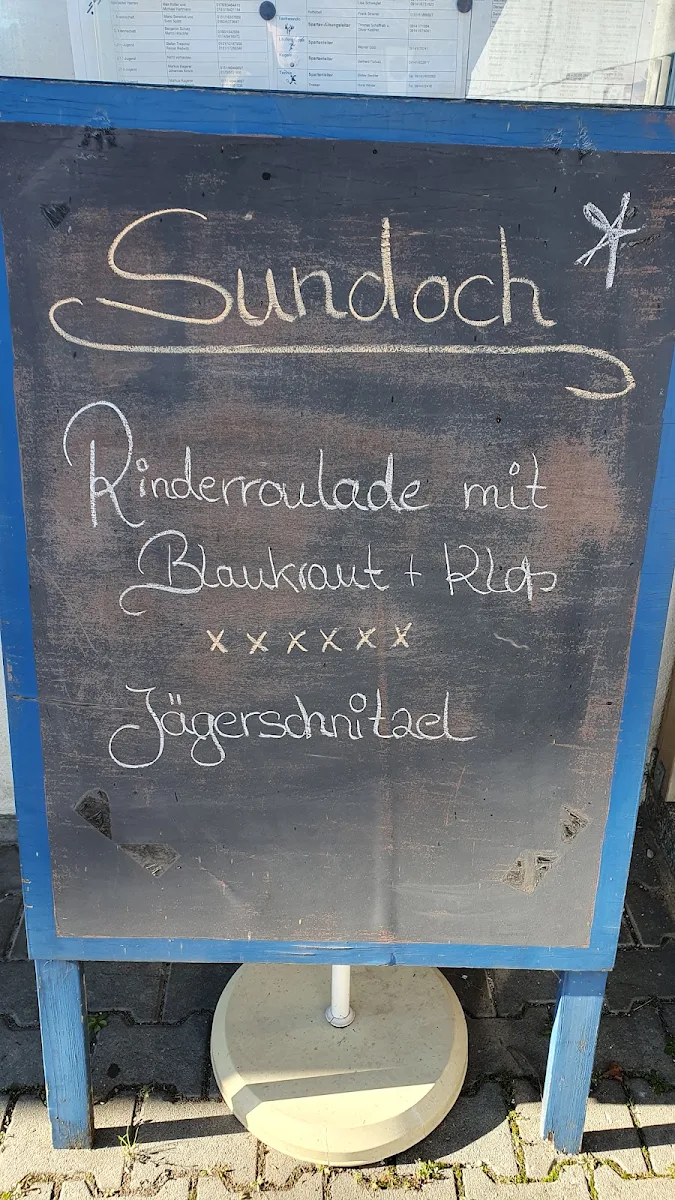 Sundoch
Rinderroulade mit
Blaukraut + Klos
xxxxxx
Jägerschnitzel